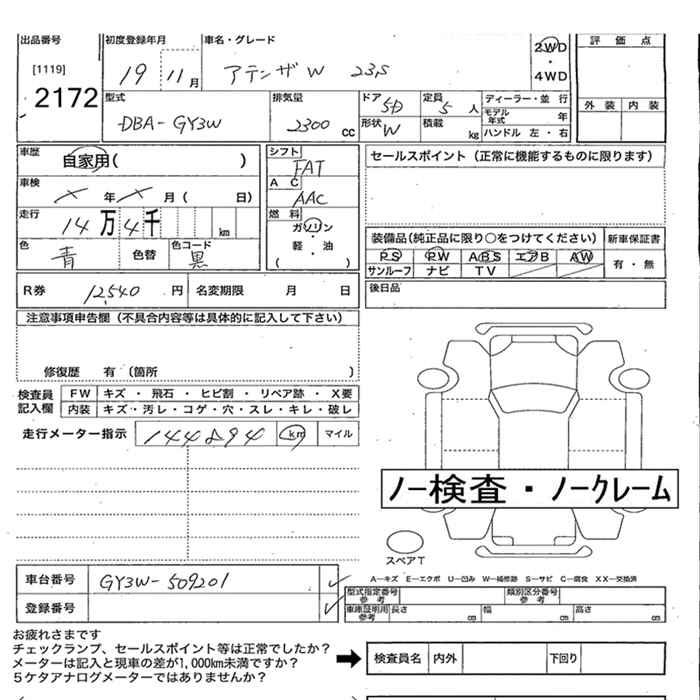 出品番号 初度登録年月 車名・グレード 評価点
[1119] 19 11月 アテンザW 23S 2WD
2172 4WD
型式 排気量 ドア 5D 定員 5人 ディーラー・並行 外装 内装
DBA-GY3W 2300cc 形状 W 積載 kg モデル年式 年
ハンドル 左・右
車歴 自家用( ) シフト FAT セールスポイント(正常に機能するものに限ります)
車検 × 年 × 月( 日) AC AAC
走行 14万4千 km 燃料 ガソリン・軽・油 ( )
装備品(純正品に限り○をつけてください) 新車保証書
色 青 色替 色コード 黒 PS PW ABS エアB AW 有・無
サンルーフ ナビ TV
R券 12,540円 名変期限 月 日 後日品
注意事項申告欄(不具合内容等は具体的に記入して下さい)
修復歴 有(箇所 )
検査員記入欄 FW キズ・飛石・ヒビ割・リペア跡・X要
内装 キズ・汚レ・コゲ・穴・スレ・キレ・破レ
走行メーター指示 km マイル
ノー検査・ノークレーム
スペアT
車台番号 GY3W-509201
A―キズ E―エクボ U―凹み W―補修跡 S―サビ C―腐食 XX―交換済
型式指定番号 参考 類別区分番号 参考
登録番号 車庫証明用 参考 長さ cm 幅 cm 高さ cm
お疲れさまです
チェックランプ、セールスポイント等は正常でしたか?
メーターは記入と現車の差が1,000km未満ですか?
5ケタアナログメーターではありませんか?
検査員名 内外 下回り